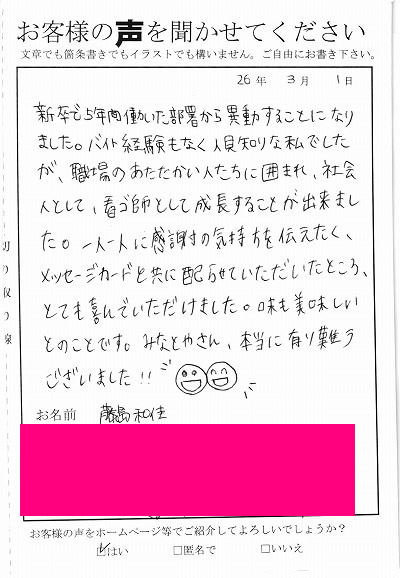 お客様の声を聞かせてください
文章でも箇条書きでもイラストでも構いません。ご自由にお書き下さい。
26年 3月 1日
新卒で5年間働いた部署から異動することになり
ました。バイト経験もなく人見知りな私でした
が、職場のあたたかい人たちに囲まれ、社会
人として、看ゴ師として成長することが出来まし
た。一人一人に感謝の気持ちを伝えたく、
メッセージカードと共に配らせていただいたところ、
とても喜んでいただけました。味も美味しい
とのことです。みなとやさん、本当に有り難う
ございました!!
お名前 藤島 和佳
切り取り線
お客様の声をホームページ等でご紹介してよろしいでしょうか?
☑はい □匿名で □いいえ